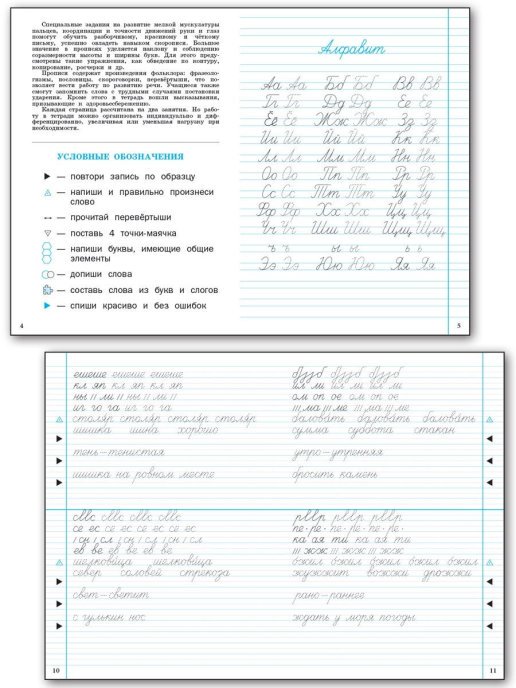 Специальные задания на развитие мелкой мускулатуры
пальцев, координации и точности движений руки и глаз
помогут обучить разборчивому, красивому и чёткому
письму, успешно овладеть навыком скорописи. Большое
значение в прописях уделяется наклону и соблюдению
соразмерности высоты и ширины букв. Для этого преду-
смотрены такие упражнения, как обведение по контуру,
копирование, росчерки и др.
Прописи содержат произведения фольклора: фразеоло-
гизмы, пословицы, скороговорки, перевёртыши, что по-
зволяет вести работу по развитию речи. Учащиеся также
смогут запомнить слова с трудными случаями постановки
ударения. Кроме этого в тетрадь вошли высказывания,
призывающие к здоровьесбережению.
Каждая страница рассчитана на два занятия. Но рабо-
ту в тетради можно организовать индивидуально и диф-
ференцированно, увеличивая или уменьшая нагрузку при
необходимости.
УСЛОВНЫЕ ОБОЗНАЧЕНИЯ
— повтори запись по образцу
— напиши и правильно произнеси
слово
— прочитай перевёртыши
— поставь 4 точки-маячка
— напиши буквы, имеющие общие
элементы
— допиши слова
— составь слова из букв и слогов
— спиши красиво и без ошибок
4
Алфавит
Аа Аа Бб Бб Вв Вв
Гг Гг Дд Дд Ее Ее
Ёё Ёё Жж Жж Зз Зз
Ии Ии Йй Йй Кк Кк
Лл Лл Мм Мм Нн Нн
Оо Оо Пп Пп Рр Рр
Сс Сс Тт Тт Уу Уу
Фф Фф Хх Хх Цц Цц
Чч Чч Шш Шш Щщ Щщ
ъ ъ ы ы ь ь
Ээ Ээ Юю Юю Яя Яя
5
ешеше ешеше ешеше
кл яп кл яп кл яп
иг го га иг го га
столяр столяр столяр столяр
шишка шина хорошо
тень—тенистая
шишка на ровном месте
се ес се ес се ес се ес
ев ве ев ве ев ве
шелковица шелковица
север соловей стрекоза
свет—светит
с гулькин нос
10
ил ли ил ли ил ли ил ли
ом оп ое ом оп ое
баловать баловать баловать
сумма суббота стакан
утро—утренняя
бросить камень
рllр рllр рllр
пе-ре- пе-ре- пе-ре-
ка ая ти ка ая ти
жж жж жж
ожил ожил ожил ожил ожил
жужжит вожжи дрожжи
рано—раннее
ждать у моря погоды
11